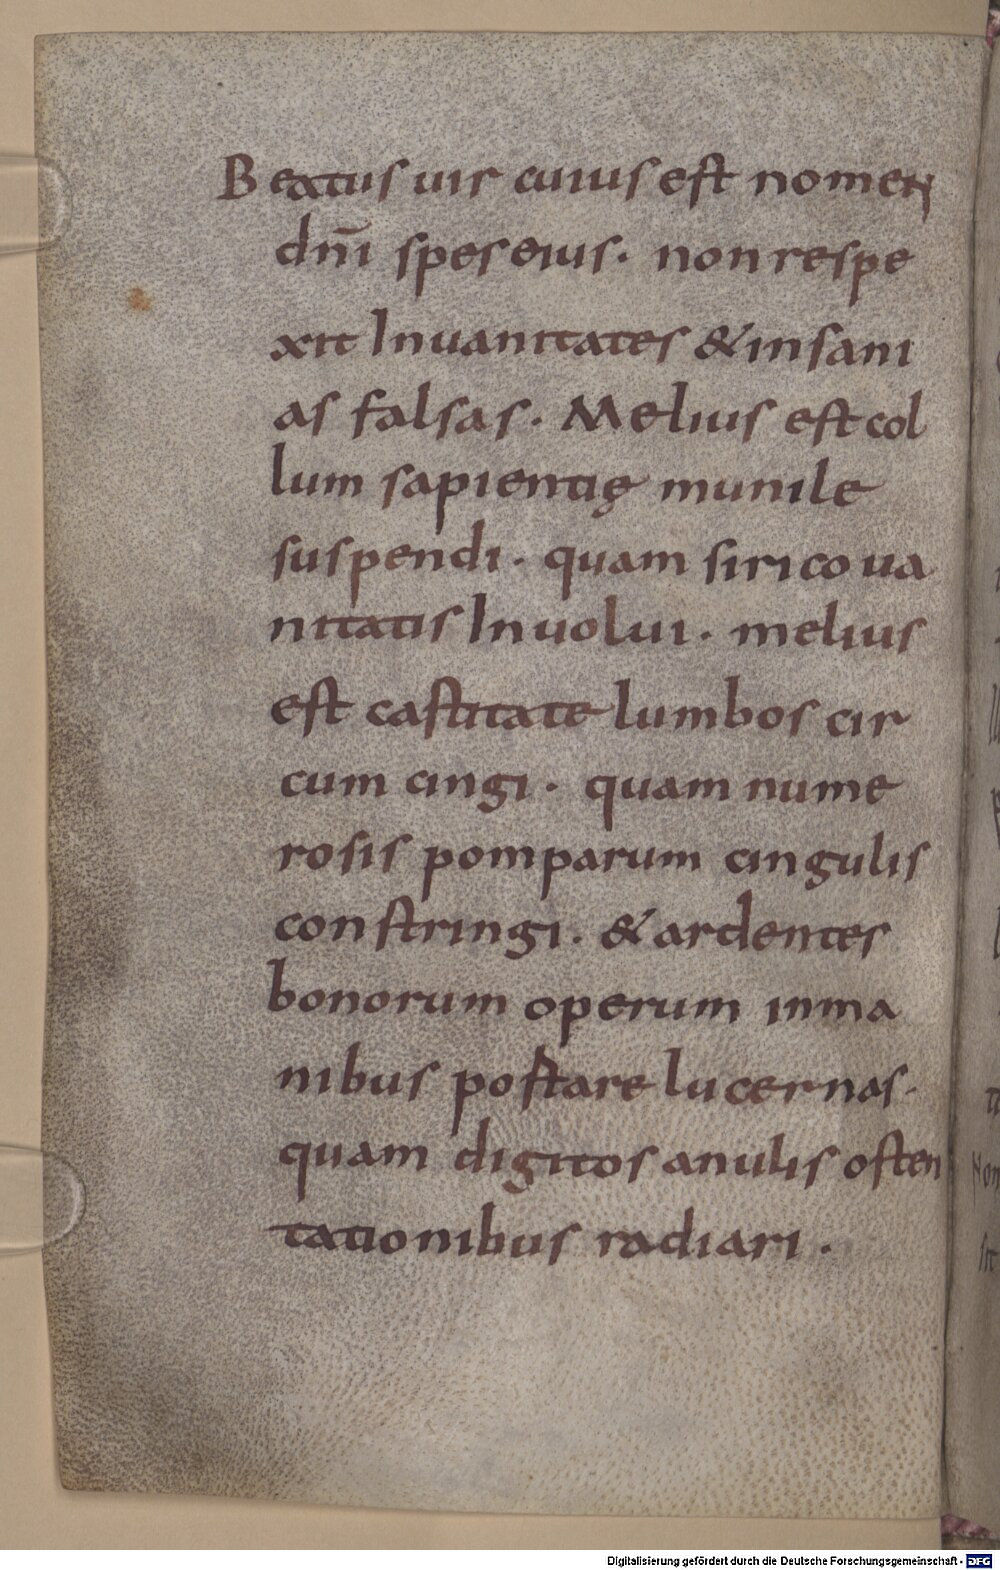 Beatus uir cuius est nomen
dn̅i spes eius. non respe
xit In uanitates & insani
as falsas. Melius est col
lum sapientię munile
suspendi. quam sirico ua
nitatis Inuolui. melius
est castitate lumbos cir
cum cingi. quam nume
rosis pomparum cingulis
constringi. & ardentes
bonorum operum inma
nibus postare lucernas.
quam digitos anulis osten
tationibus radiari.
Digitalisierung gefördert durch die Deutsche Forschungsgemeinschaft - DFG